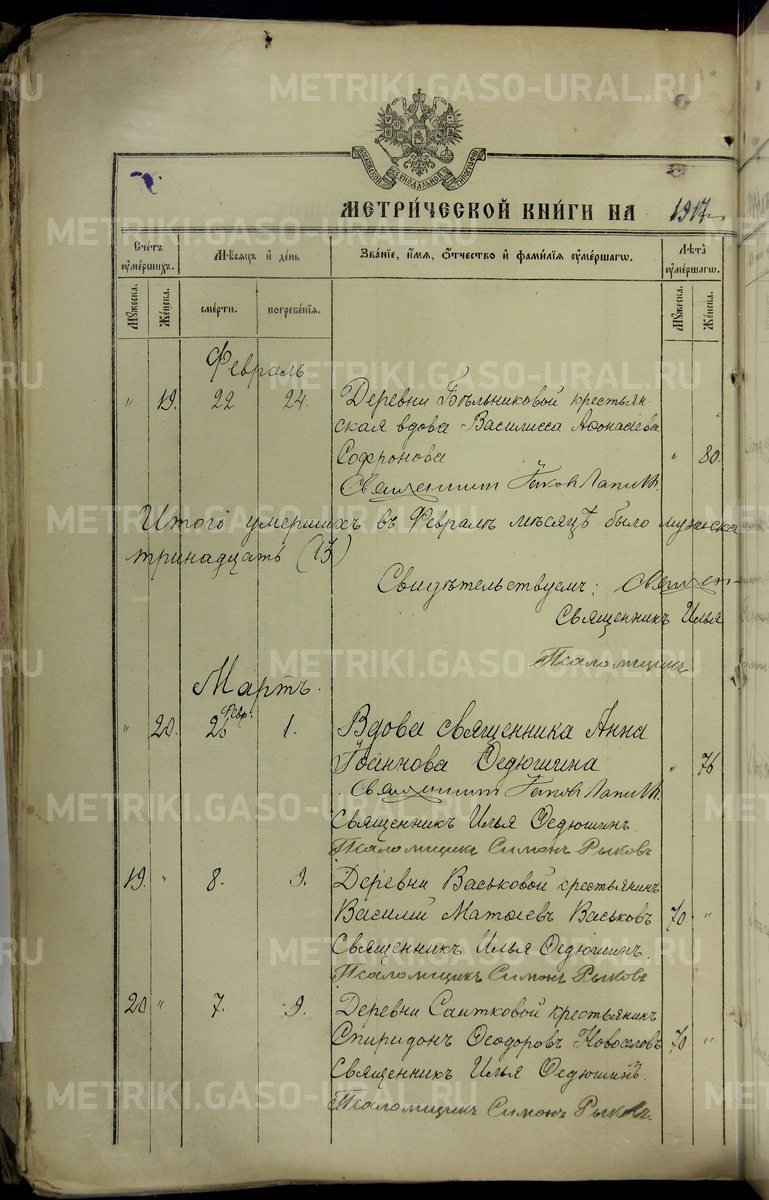 МОСКОВСКОЙ СѴНОДАЛЬНОЙ ТИПОГРАФІИ
МЕТРИ́ЧЕСКОЙ КНИ́ГИ НА 1917
Сче́тъ оумершихъ.
Мѣсяцъ и день
Зва́ніе, и́мя, о́тчество и фами́лія оуме́ршагѡ.
Лѣта оуме́ршагѡ.
Мужеска.
Женска.
смерти.
погребе́нія.
Мужеска.
Женска.
Февраль
" 19. 22 24. Деревни Бѣльниковой крестьян-
ская вдова Василисса Аѳонасіева
Софронова " 80.
Священникъ Іаковъ
Итого умершихъ въ Февралѣ мѣсяцѣ было мужеска
тринадцать (13)
Свидѣтельствуемъ: Священ-
Священникъ Илья
Псаломщикъ
Мартъ.
" 20. Февр. 26 1. Вдова священника Анна
Іоаннова Ѳедюшина " 76
Священникъ Іаковъ
Священникъ Илья Ѳедюшинъ.
Псаломщикъ Симонъ Рыковъ
19. " 8. 9. Деревни Васьковой крестьянинъ
Василій Матѳіевъ Васьковъ 70. "
Священникъ Илья Ѳедюшинъ.
Псаломщикъ Симонъ Рыковъ
20 " 7. 9. Деревни Саитковой крестьянинъ
Спиридонъ Ѳеодоровъ Новоселовъ 70 "
Священникъ Илья Ѳедюшинъ.
Псаломщикъ Симонъ Рыковъ.
METRIKI.GASO-URAL.RU